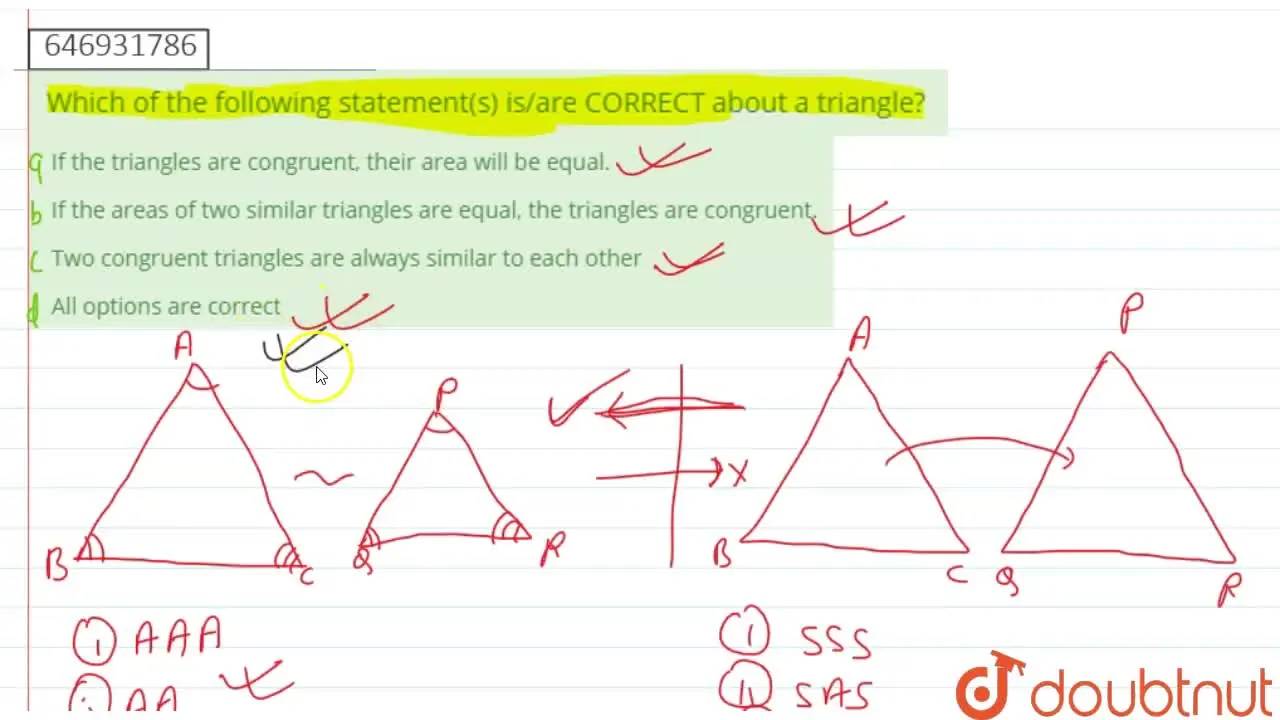 646931786
Which of the following statement(s) is/are CORRECT about a triangle?
a If the triangles are congruent, their area will be equal.
b If the areas of two similar triangles are equal, the triangles are congruent.
c Two congruent triangles are always similar to each other
d All options are correct
A
P
A
P
~
x
B
C
Q
R
B
C
Q
R
① AAA
① SSS
AA
② SAS
doubtnut